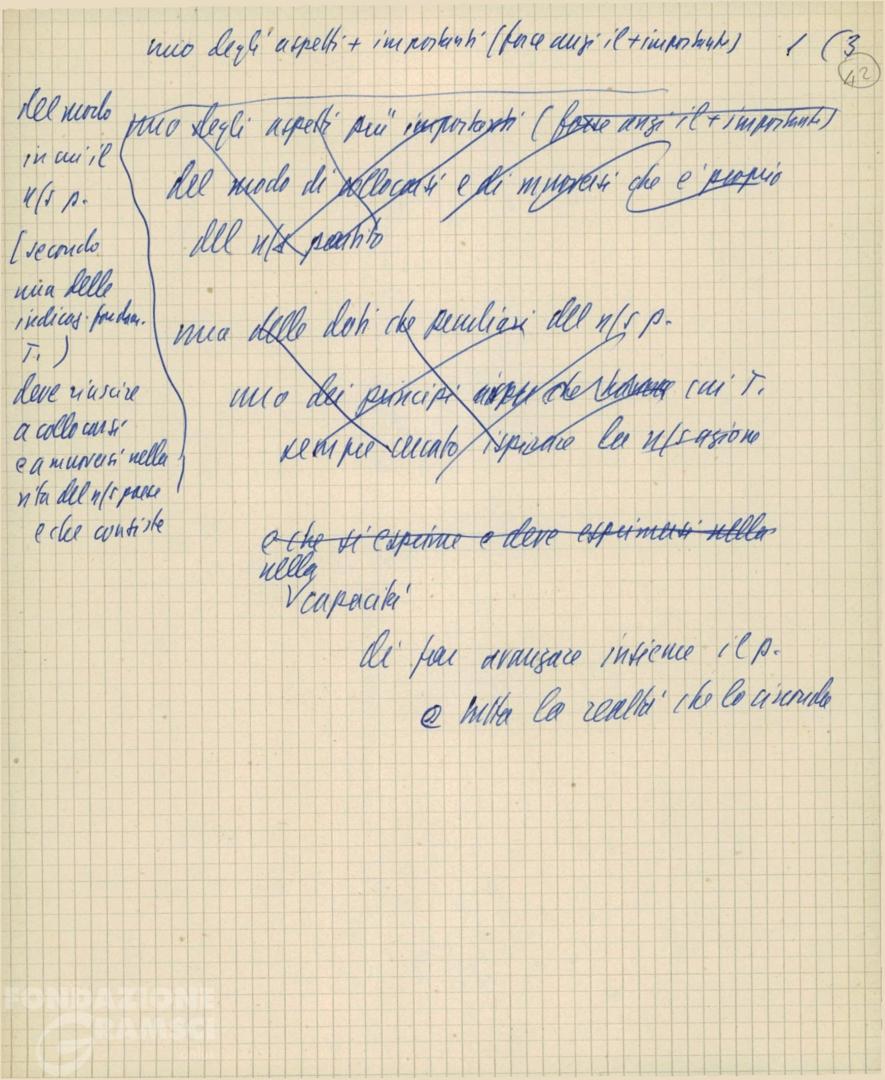 uno degli aspetti + importanti (forse anzi il + importante) 1 (3
42
del modo
in cui il
n/s p.
[secondo
una delle
indicaz. fondam.
T.)
deve riuscire
a collocarsi
e a muoversi nella
vita del n/s paese
e che consiste
uno degli aspetti più importanti (forse anzi il + importante)
del modo di collocarsi e di muoversi che è proprio
del n/s partito
una delle doti che peculiari del n/s p.
uno dei principi che cui T.
sempre cercato ispirare la n/s azione
e che si esprime e deve esprimersi nella
nella
capacità
di far avanzare insieme il p.
e tutta la realtà che lo circonda
FONDAZIONE
GRAMSCI